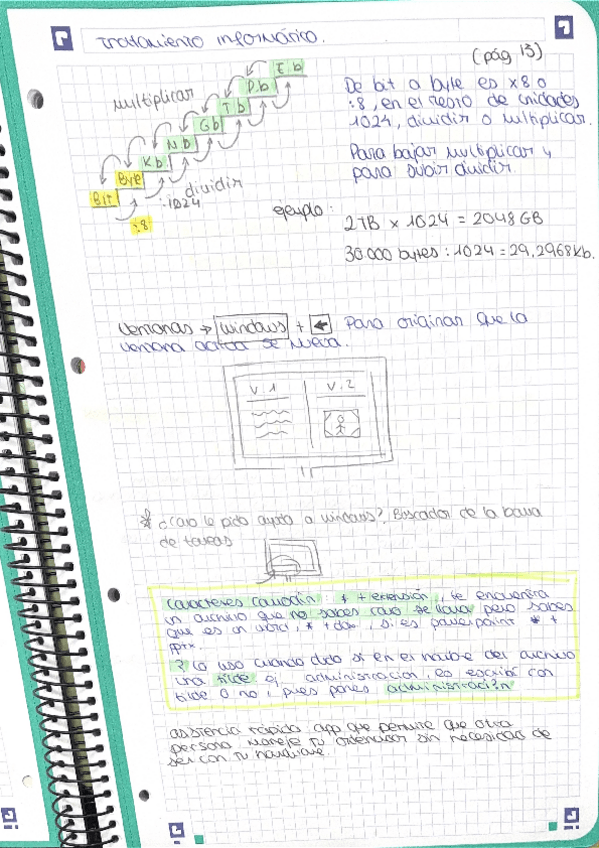 Tratamiento informático.
(pág 13)
Multiplicar
E b
P b
T b
Gb
Mb
Kb
Byte
Bit
dividir
:1024
:8
De bit a byte es x8 o
:8, en el resto de unidades
1024, dividir o multiplicar.
Para bajar multiplicar y
para subir dividir.
ejemplo:
2TB x 1024 = 2048 GB
30.000 bytes : 1024 = 29,2968Kb.
Ventanas → windows + ← Para originar que la
ventana se mueva.
V.1 V.2
* ¿Cómo le pido ayuda a windows? Buscador de la barra
de tareas
caracteres comodín: * + extensión, te encuentra
un archivo que no sabes como se llama pero sabes
que es un word, * + dox, si es powerpoint * +
pptx.
? lo uso cuando dudo si en el nombre del archivo
una tilde ej. administración, es escribí con
tilde o no, pues pones administraci?n
asistencia rápida: app que permite que otra
persona maneje tu ordenador sin necesidad de
ser con tu hardware.